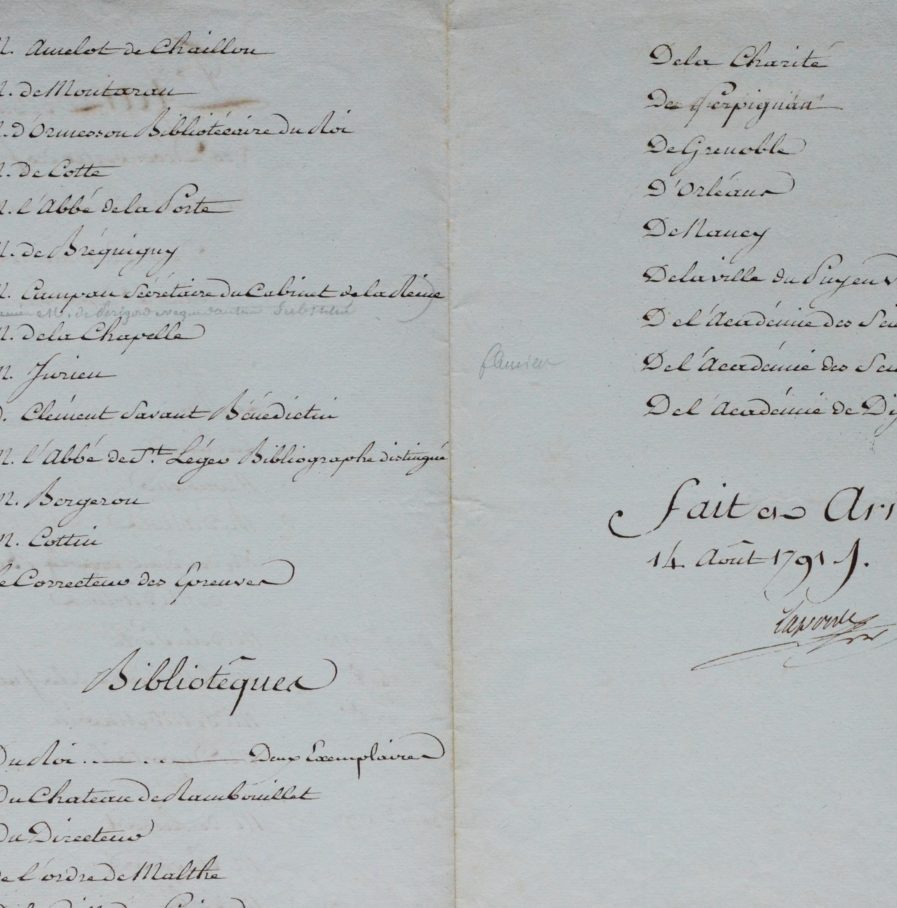 M. Amelot de Chaillou
M. de Montaran
M. d'Ormesson Bibliotécaire du Roi
M. de Cotte
M. l'Abbé de la Porte
M. de Bréquigny
M. Campan Secrétaire du Cabinet de la Reine
M. de la Chapelle
M. Jurien
D. Clément Savant Bénédictin
M. l'Abbé de St. Léger Bibliographe distingué
M. Bergeron
M. Cottin
le Correcteur des Epreuves
Bibliotêques
Du Roi Deux Exemplaires
Du Chateau de Rambouillet
Du Directeur
De l'ordre de Malthe
De la Charité
De Perpignan
De Grenoble
D'Orléans
De Nancy
De la ville du Puy en V
De l'Académie des Sci
De l'Académie des Sci
De l'Académie de Dij
Fait et Arr
14. Août 1791.
Laporte